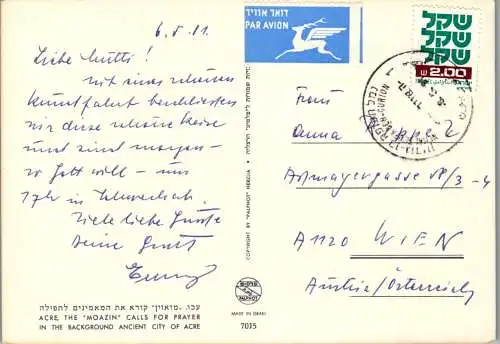 6.5.81
Liebe Mutti!
Mit einer schönen
beschließen
wir diese schöne Reise
und sind morgen -
so Gott will - um
17h in Schwechat.
Viele liebe Grüsse
Deine
דואר אוויר
PAR AVION
שקל
שקל
שקל
2.00
Frau
Anna
18/3-4
A 1120 WIEN
Austria/Österreich
COPYRIGHT BY "PALPHOT" HERZLIA
PALPHOT
MADE IN ISRAEL
7015
עכו. "מואזין" קורא את המאמינים לתפילה
ACRE, THE "MOAZIN" CALLS FOR PRAYER
IN THE BACKGROUND ANCIENT CITY OF ACRE